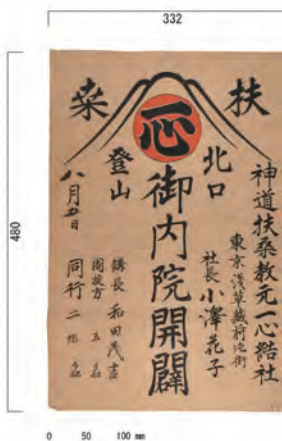 332
480
扶桒
一心
北口
登山
神道扶桑教元一心結社
東京浅草蔵前
社長 小澤花子
御内院開闢
八月五日
講長 和田茂吉
周旋方 五名
同行二拾名
0 50 100 mm